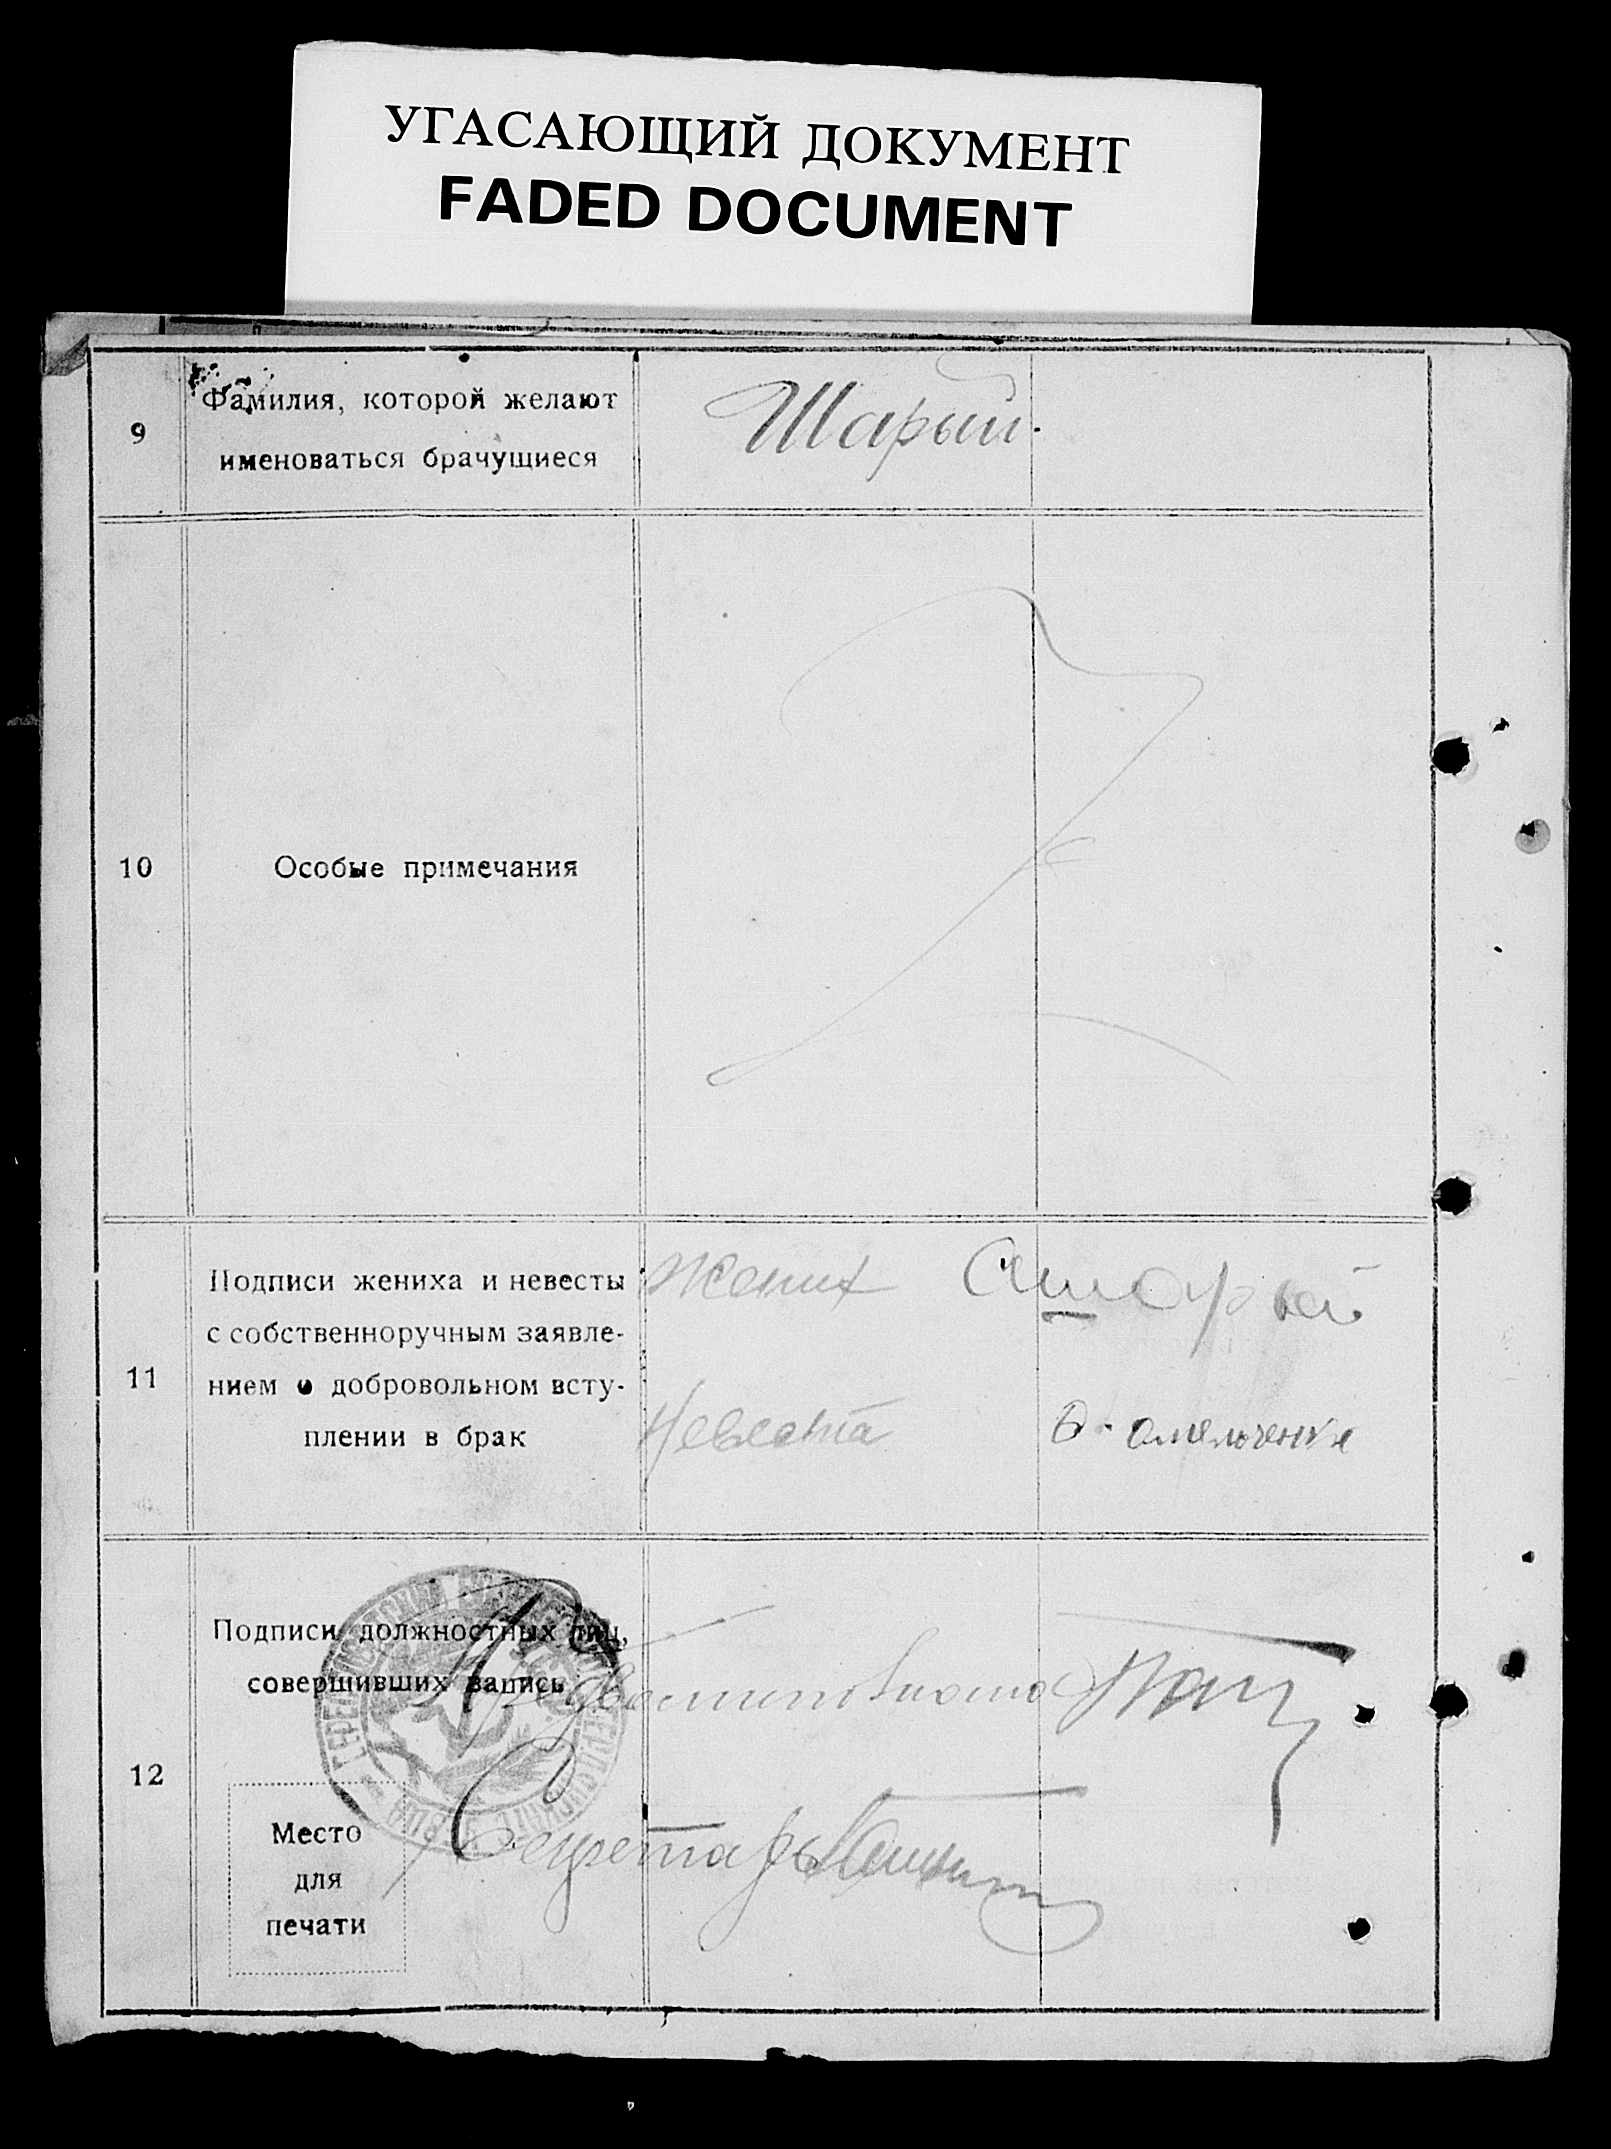 УГАСАЮЩИЙ ДОКУМЕНТ
FADED DOCUMENT
9
Фамилия, которой желают
именоваться брачущиеся
Шарый.
10
Особые примечания
11
Подписи жениха и невесты
с собственноручным заявле-
нием о добровольном всту-
плении в брак
Жених
Шарый
Невеста
омельченко
12
Подписи должностных лиц,
совершивших запись
Секретарь
Место
для
печати